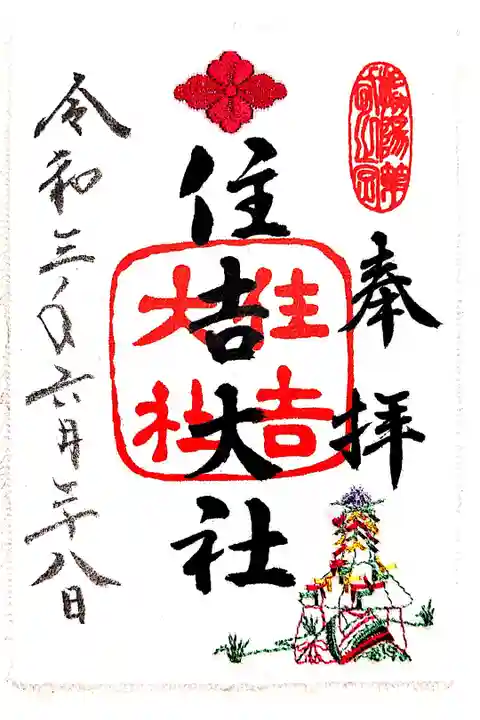 奉拝
住吉大社
住吉
大社
令和三年六月二十八日